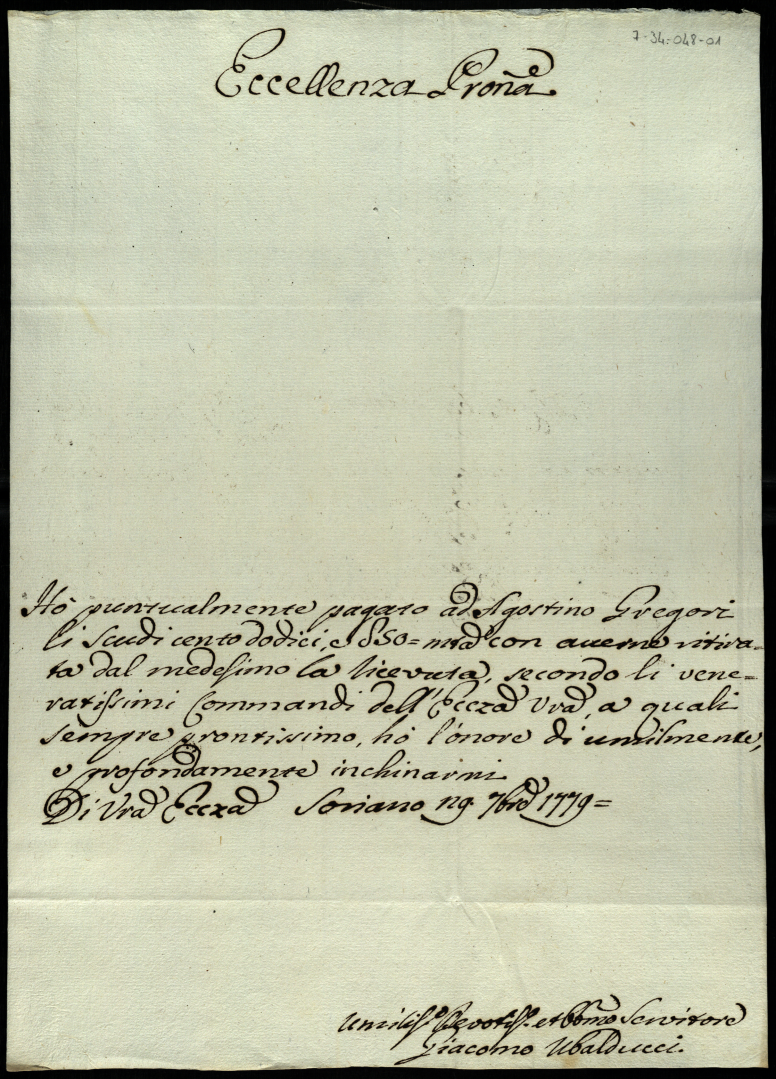 7-34-048-01
Eccellenza Proñā
Hò puntualmente pagato ad Agostino Gregori
li scudi cento dodici, e 850= mtā con averne ritira-
ta dal medesimo la ricevuta, secondo li vene-
ratissimi Commandi dell' Eccza Vra, a quali
sempre prontissimo, hò l'onore di umilmente,
e profondamente inchinarmi
Di Vra Eccza Soriano 7bre 1779=
Umiliss.o Devotiss.o et Obb̄mo Servitore
Giacomo Ubalducci.